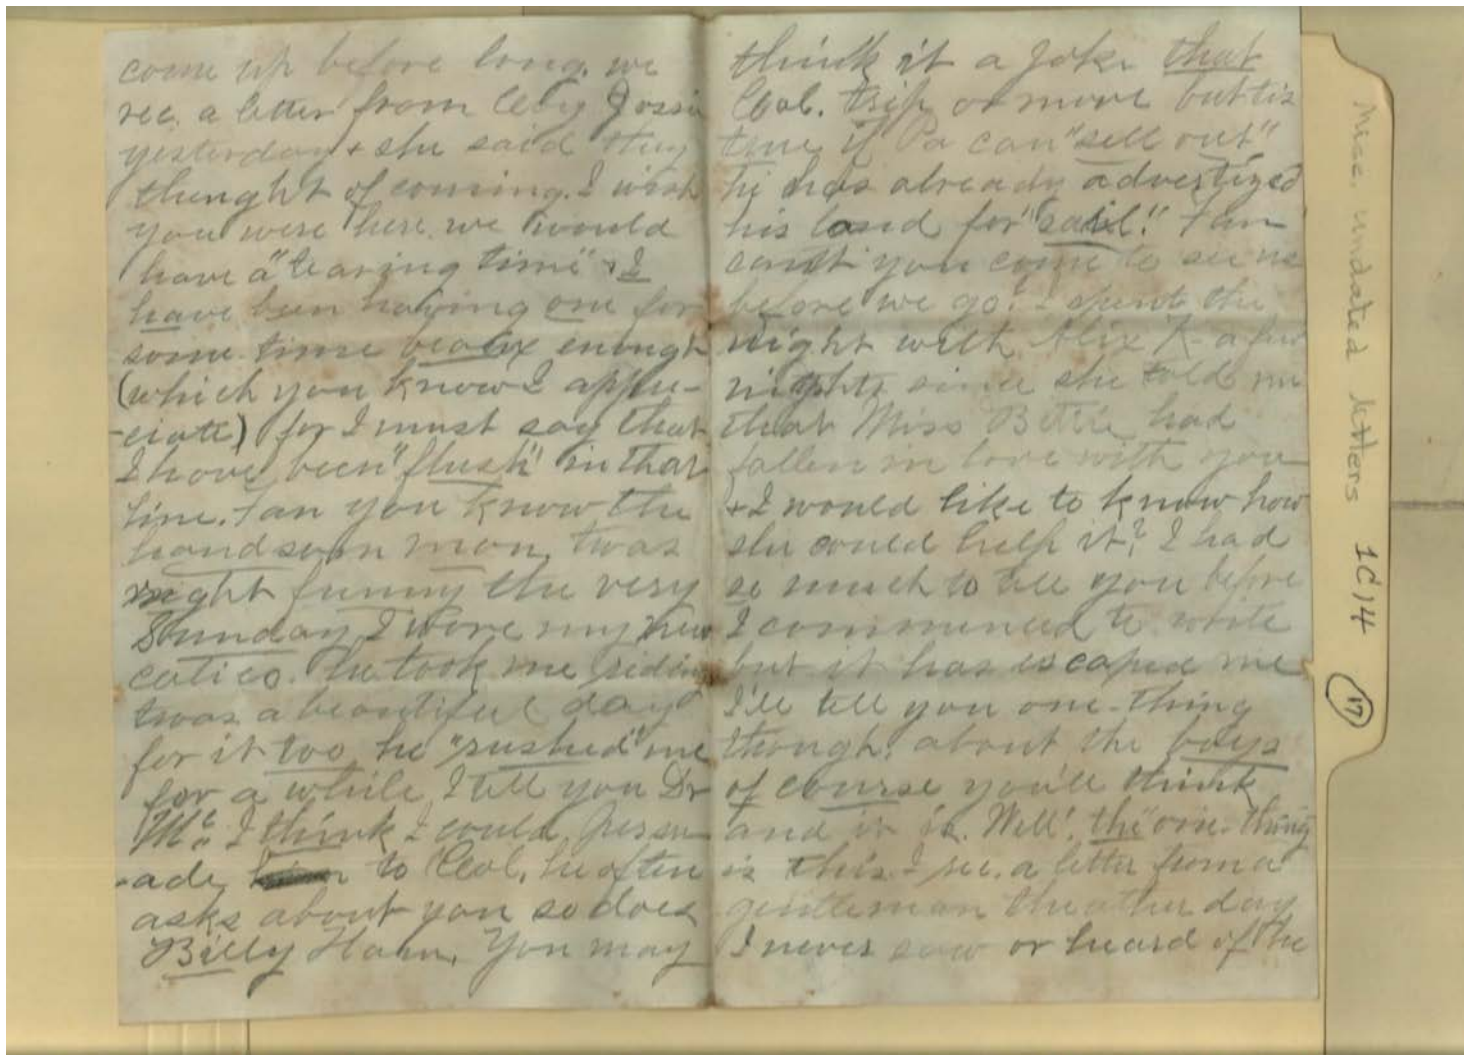 come up before long. we
rec. a letter from Josie
yesterday & she said they
thought of coming. I wish
you were here. we would
have a "tearing time" & I
have been having one for
some time beaux enough
(which you know I appre-
-ciate) for I must say that
I have been "flush" in that
line. Fan you know the
handsom man, twas
right funny the very
Sunday I wore my new
calico. he took me riding
twas a beautiful day
for it too he "rushed" me
for a while, I tell you Dr
Mc. I think I could persu-
-ade to Col. he often
asks about you so does
Billy Hahn. You may
think it a joke that
Col. trip or move but tis
true if Pa can "sell out"
he has already advertized
his land for "sail". Fan
cant you come to see us
before we go? I spent the
night with Alix K- a few
nights since she told me
that Miss Bettie had
fallen in love with you
& I would like to know how
she could help it? I had
so much to tell you before
I commenced to write
but it has escaped me
I'll tell you one-thing
though, about the boys
of course you'll think
and it is. Well! the "one-thing
is this. I rec. a letter from a
gentleman the other day
I never saw or heard of the
Misc. undated letters 1C14 17